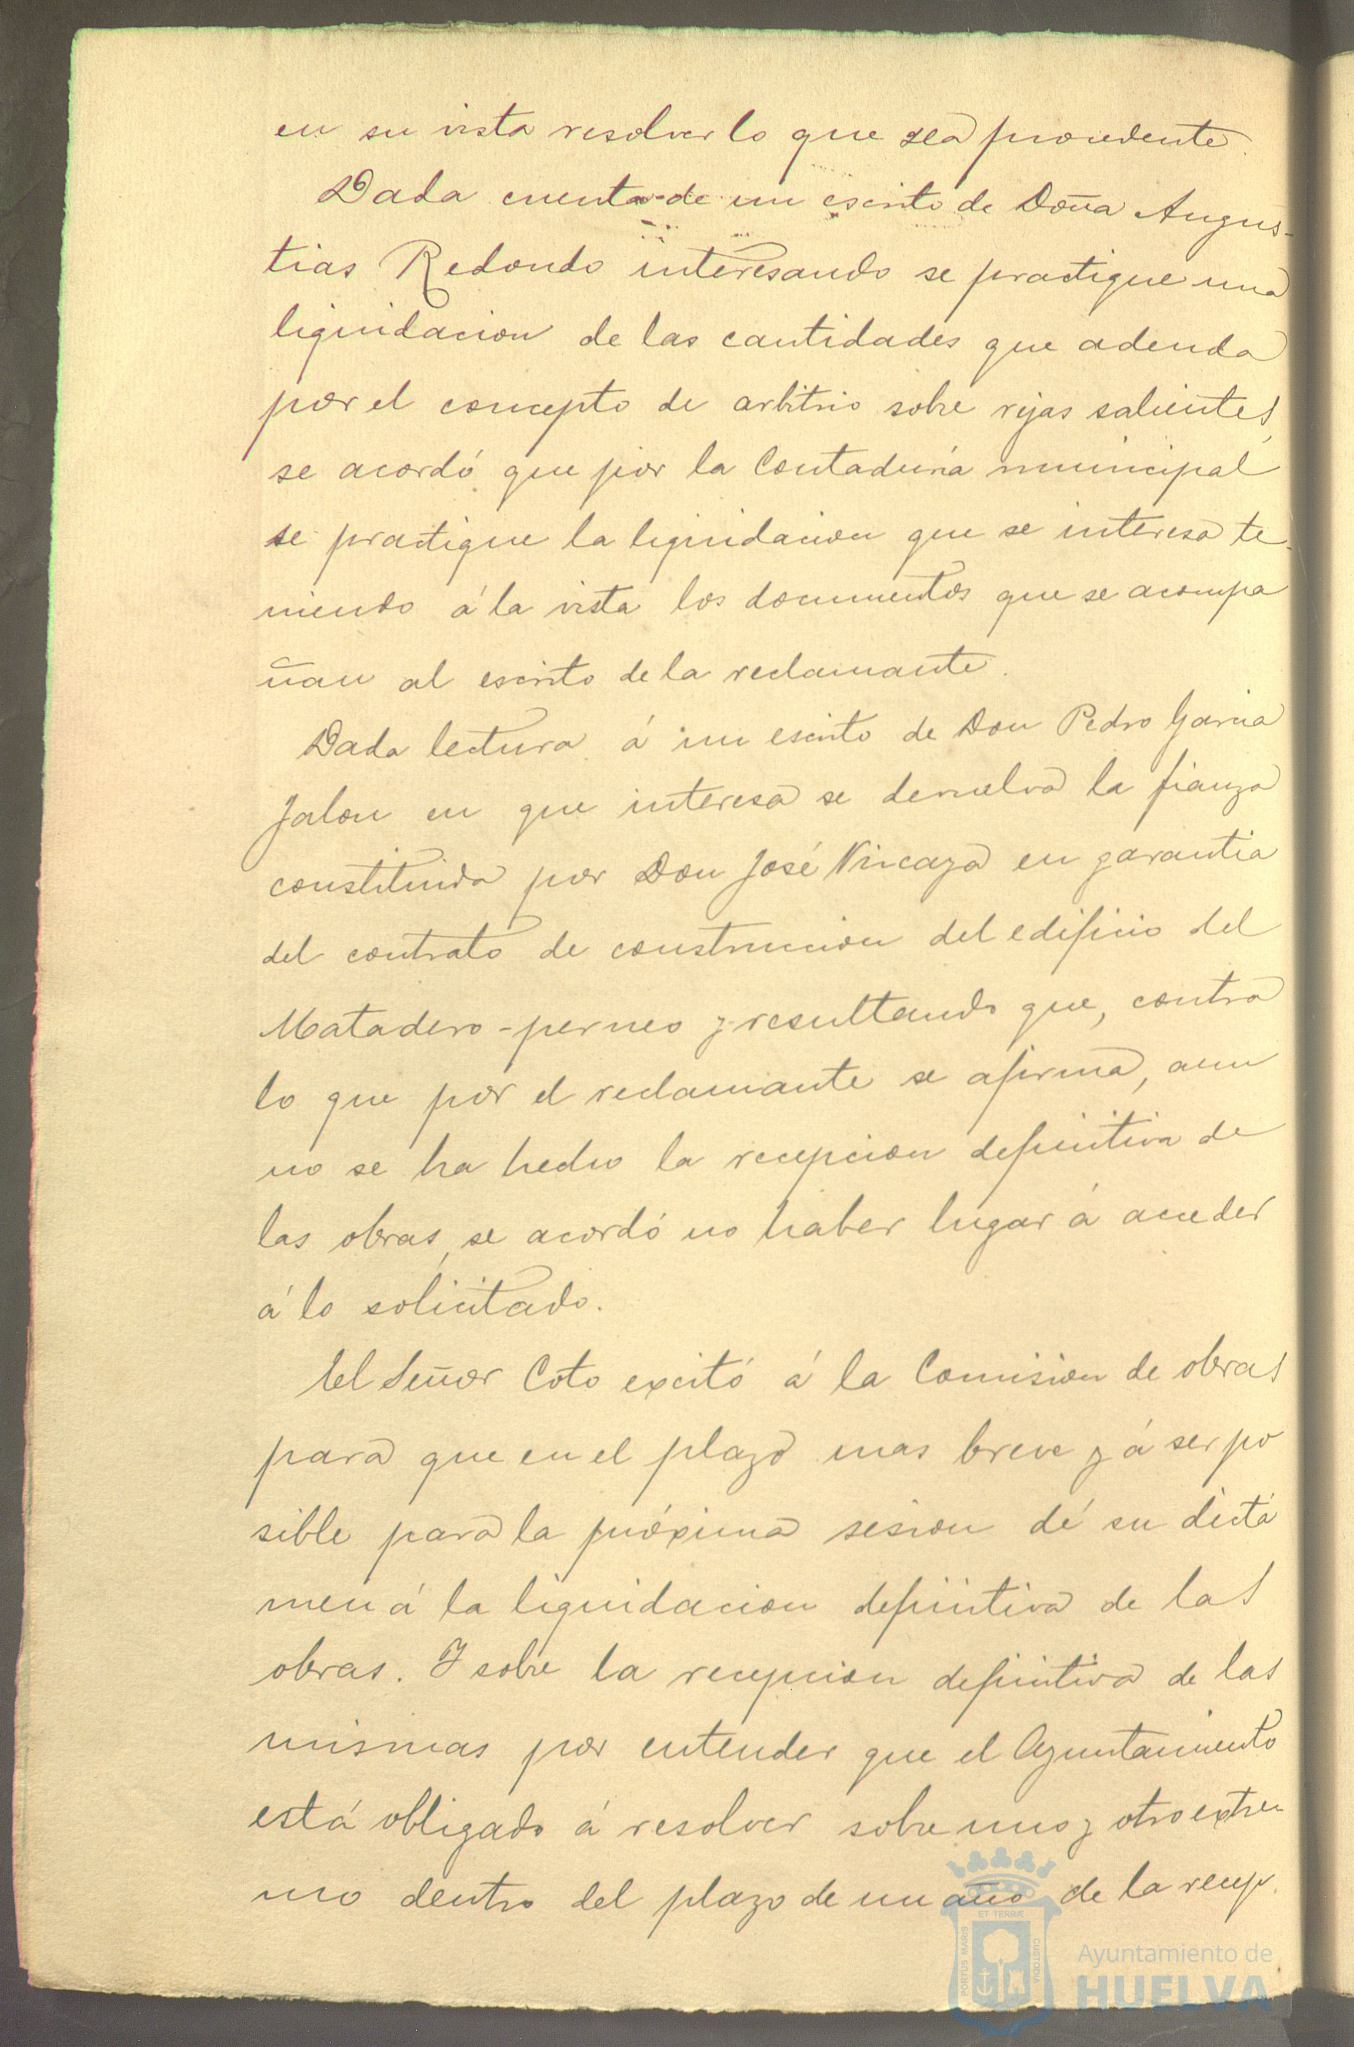 en su vista resolver lo que sea procedente.
Dada cuenta de un escrito de Doña Angus-
tias Redondo interesando se practique una
liquidacion de las cantidades que adeuda
por el concepto de arbitrio sobre rejas salientes,
se acordó que por la Contaduría municipal
se practique la liquidacion que se interesa te-
niendo á la vista los documentos que se acompa
ñan al escrito de la reclamante.
Dada lectura á un escrito de Don Pedro Garcia
Jalon en que interesa se devuelva la fianza
constituida por Don José Vizcaya en garantia
del contrato de construccion del edificio del
Matadero-perneo y resultando que, contra
lo que por el reclamante se afirma, aun
no se ha hecho la recepcion definitiva de
las obras, se acordó no haber lugar á acceder
á lo solicitado.
El Señor Coto excitó á la Comision de obras
para que en el plazo mas breve y á ser po
sible para la próxima sesion dé su dictá
men á la liquidacion definitiva de las
obras. Y sobre la recepcion definitiva de las
mismas por entender que el Ayuntamiento
está obligado á resolver sobre uno y otro extre
mo dentro del plazo de un año de la recep.
PORTUS MARIS
ET TERRÆ
CUSTODIA
Ayuntamiento de
HUELVA